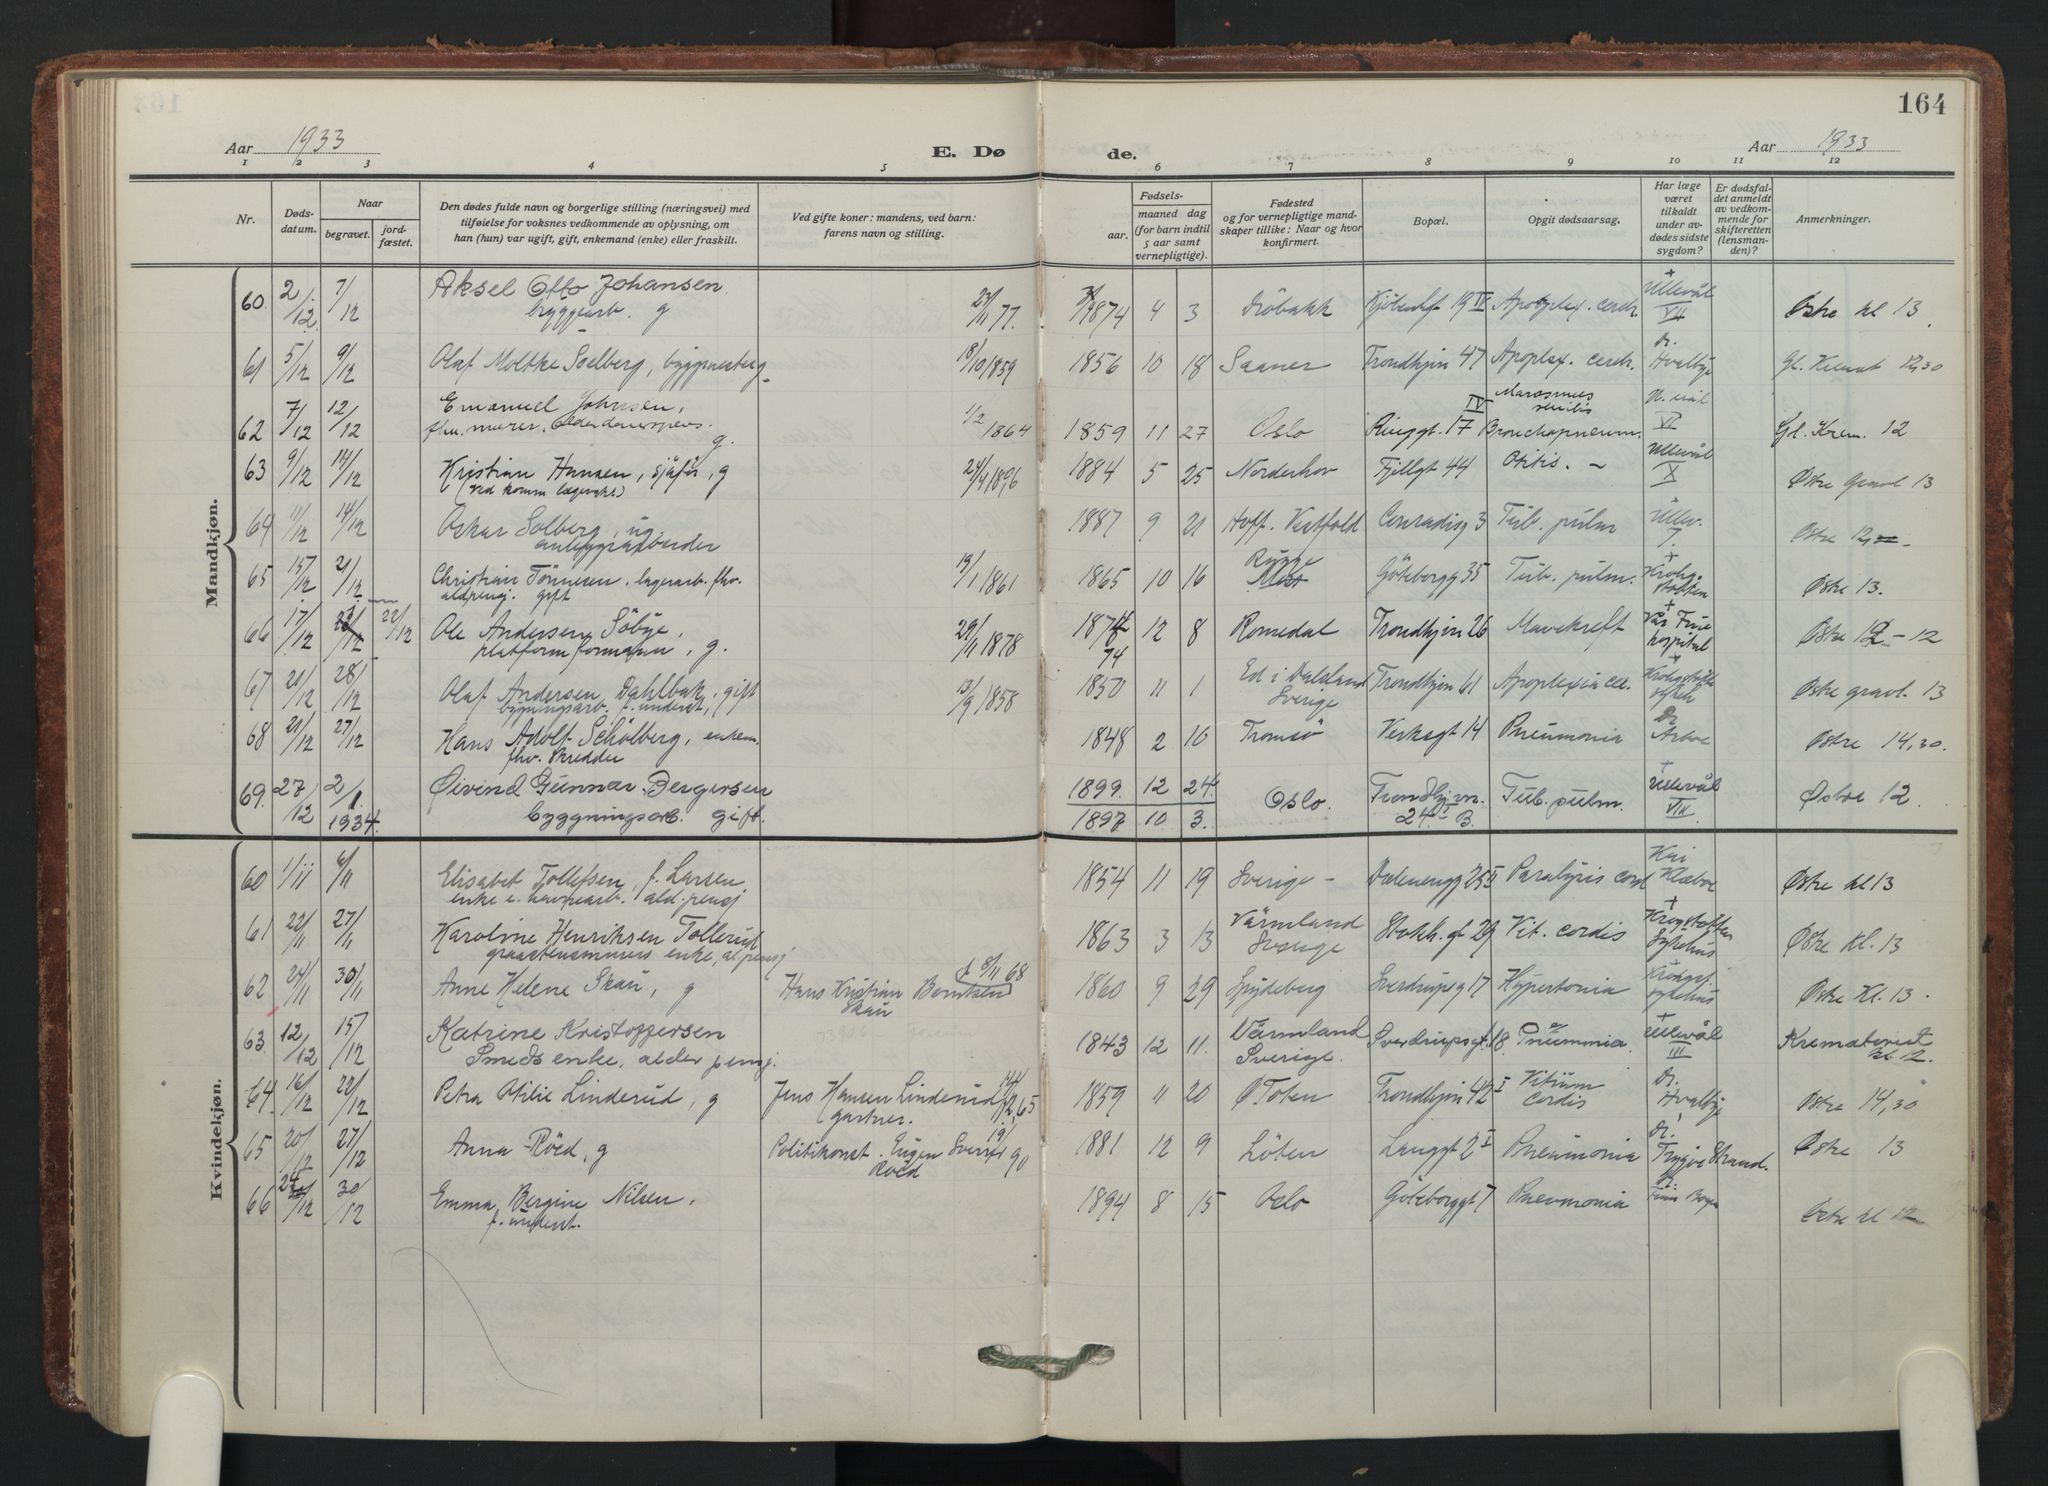 164
Aar 1933
E. Dø
de.
Aar 1933
1 2 3 4 5 6 7 8 9 10 11 12
Nr.
Døds-
datum.
Naar
begravet.
jord-
fæstet.
Den dødes fulde navn og borgerlige stilling (næringsvei) med
tilføielse for voksnes vedkommende av oplysning, om
han (hun) var ugift, gift, enkemand (enke) eller fraskilt.
Ved gifte koner: mandens, ved barn:
farens navn og stilling.
Fødsels-
aar.
maaned dag
(for barn indtil
5 aar samt
vernepligtige).
Fødested
og for vernepligtige mand-
skaper tillike: Naar og hvor
konfirmert.
Bopæl.
Opgit dødsaarsag.
Har læge
været
tilkaldt
under av-
dødes sidste
sygdom?
Er dødsfal-
det anmeldt
av vedkom-
mende for
skifteretten
(lensman-
den)?
Anmerkninger.
Mandkjøn.
60 2/12 7/12 Aksel Otto Johansen 23/11 77. 1874 4 3 Dröbakk 19 IV Apoplex. cerebr. + Ullevål VII Østre kl 13.
byggearb. g
61 5/12 9/12 Olaf Moltke Solberg, 18/10 1859 1856 10 18 Saaner Trondhjvn 47 Apoplex. cerebr. Dr. Hvalbye Gl. Kremat 12,30
62 7/12 12/12 Emanuel Johnsen, 1/2 1864 1859 11 27 Oslo Ringgt. 17 IV Marasmus senilis Bronchopneum. VI Gl. Krem. 12
fhv. murer. g.
63 9/12 14/12 Kristian Hansen, sjåfør, g 24/4 1896 1884 5 25 Norderhov Fjellgt 44 Otitis. - Ullevål X Østre gravl 13
64 11/12 14/12 Oskar Solberg, ug. 1887 9 21 Hoff. Vestfold Conradisg 3 Tub. pulm Ullev. 7. Østre 12,
anleggsarbeider
65 15/12 21/12 Christian Tönnesen. lagerarb. fhv. 19/1 1861 1865 10 16 Rygge Göteborgg 35 Tub. pulm. + Krohg-støtten Østre 13.
aldpensj. gift
66 17/12 22/12 Ole Andersen Söbye, 29/11 1878 12 8 Romedal Trondhjvn 26 Mavekreft + Vår Frue hospital Østre 12-12
platformformann, g. 74
67 20/12 28/12 Olaf Andersen Dahlbak, gift 13/9 1858 1850 11 1 Ed i Dalsland Sverige Trondhjvn 61 Apoplexia cer. + Østre gravl. 13
bygningsarb. f. underst.,
68 21/12 27/12 Hans Adolf Schölberg, enkem. 1848 2 10 Tromsö Verksgt 14 Pneumonia Dr Østre 14,30.
fhv. skredder
69. 27/12 2/1 1934. Øivind Gunnar Bergersen 1899. 12 24. Oslo. Trondhjvn. 24 I B. Tub. pulm. + Ullevål VII Østre 12.
byggningsarb. gift. 1897 10 3.
Kvindekjøn.
60 1/11 6/11 Elisabet Tollefsen, f. Larsen 1854 11 19 Sverige - Dælenengg 25 II Paralysis cord Kai Klæboe Østre kl 13
enke e. havnearb. ald.pensj
61 22/11 27/11 Karoline Henriksen Tollerud 1863 3 13 Värmland Sverige Stokh. gt 29 Vit. cordis + Krogstøtten Sykehus Østre Kl. 13
enke, al.pensj
62 24/11 30/11 Anne Helene Skau, g Hans Kristian Berntsen Skau f 8/11 68 1860 9 29 Spydeberg Sverdrupsg 17 Hypertonia sykehus Østre Kl. 13.
63. 12/12 15/12 Katrine Kristoffersen 1843 12 11. Värmland Sverige. Sverdrupsgt. 18. Pneumonia. + Ullevål III Krematoriet kl 12.
Smeds enke, alder pensj.
64 16/12 22/12 Petra Otilie Linderud, g Jens Hansen Linderud gartner. 65 1859 11 20 Ø Toten Trondhjvn 42 I Vitium cordis Dr. Hvalbye Østre 14,30
65 20/12 27/12 Anna Röed, g Politikonst. Eugen Roed 19/1 90 1881 12 9 Löten Langgt 2 I Pneumonia Dr. Trygve Strand. Østre 13
66 24/12 30/12 Emma Bergine Nilsen, 1894 8 15 Oslo Göteborggt 7 Pneumonia Østre kl 12
f. underst.